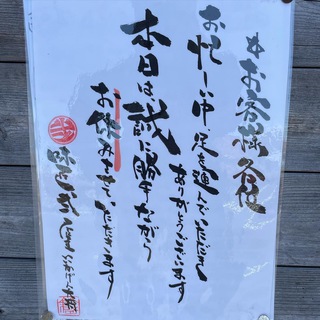 お客様各位
お忙しい中、足を運んでいただき
ありがとうございます
本日は誠に勝手ながら
お休みさせていただきます